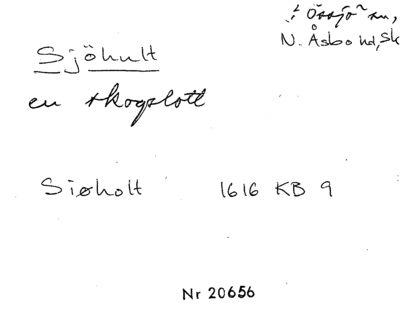 i Össjö sn,
N. Åsbo hd, Sk
Sjöhult
en skogslott
Siøholt 1616 KB 9
Nr 20656